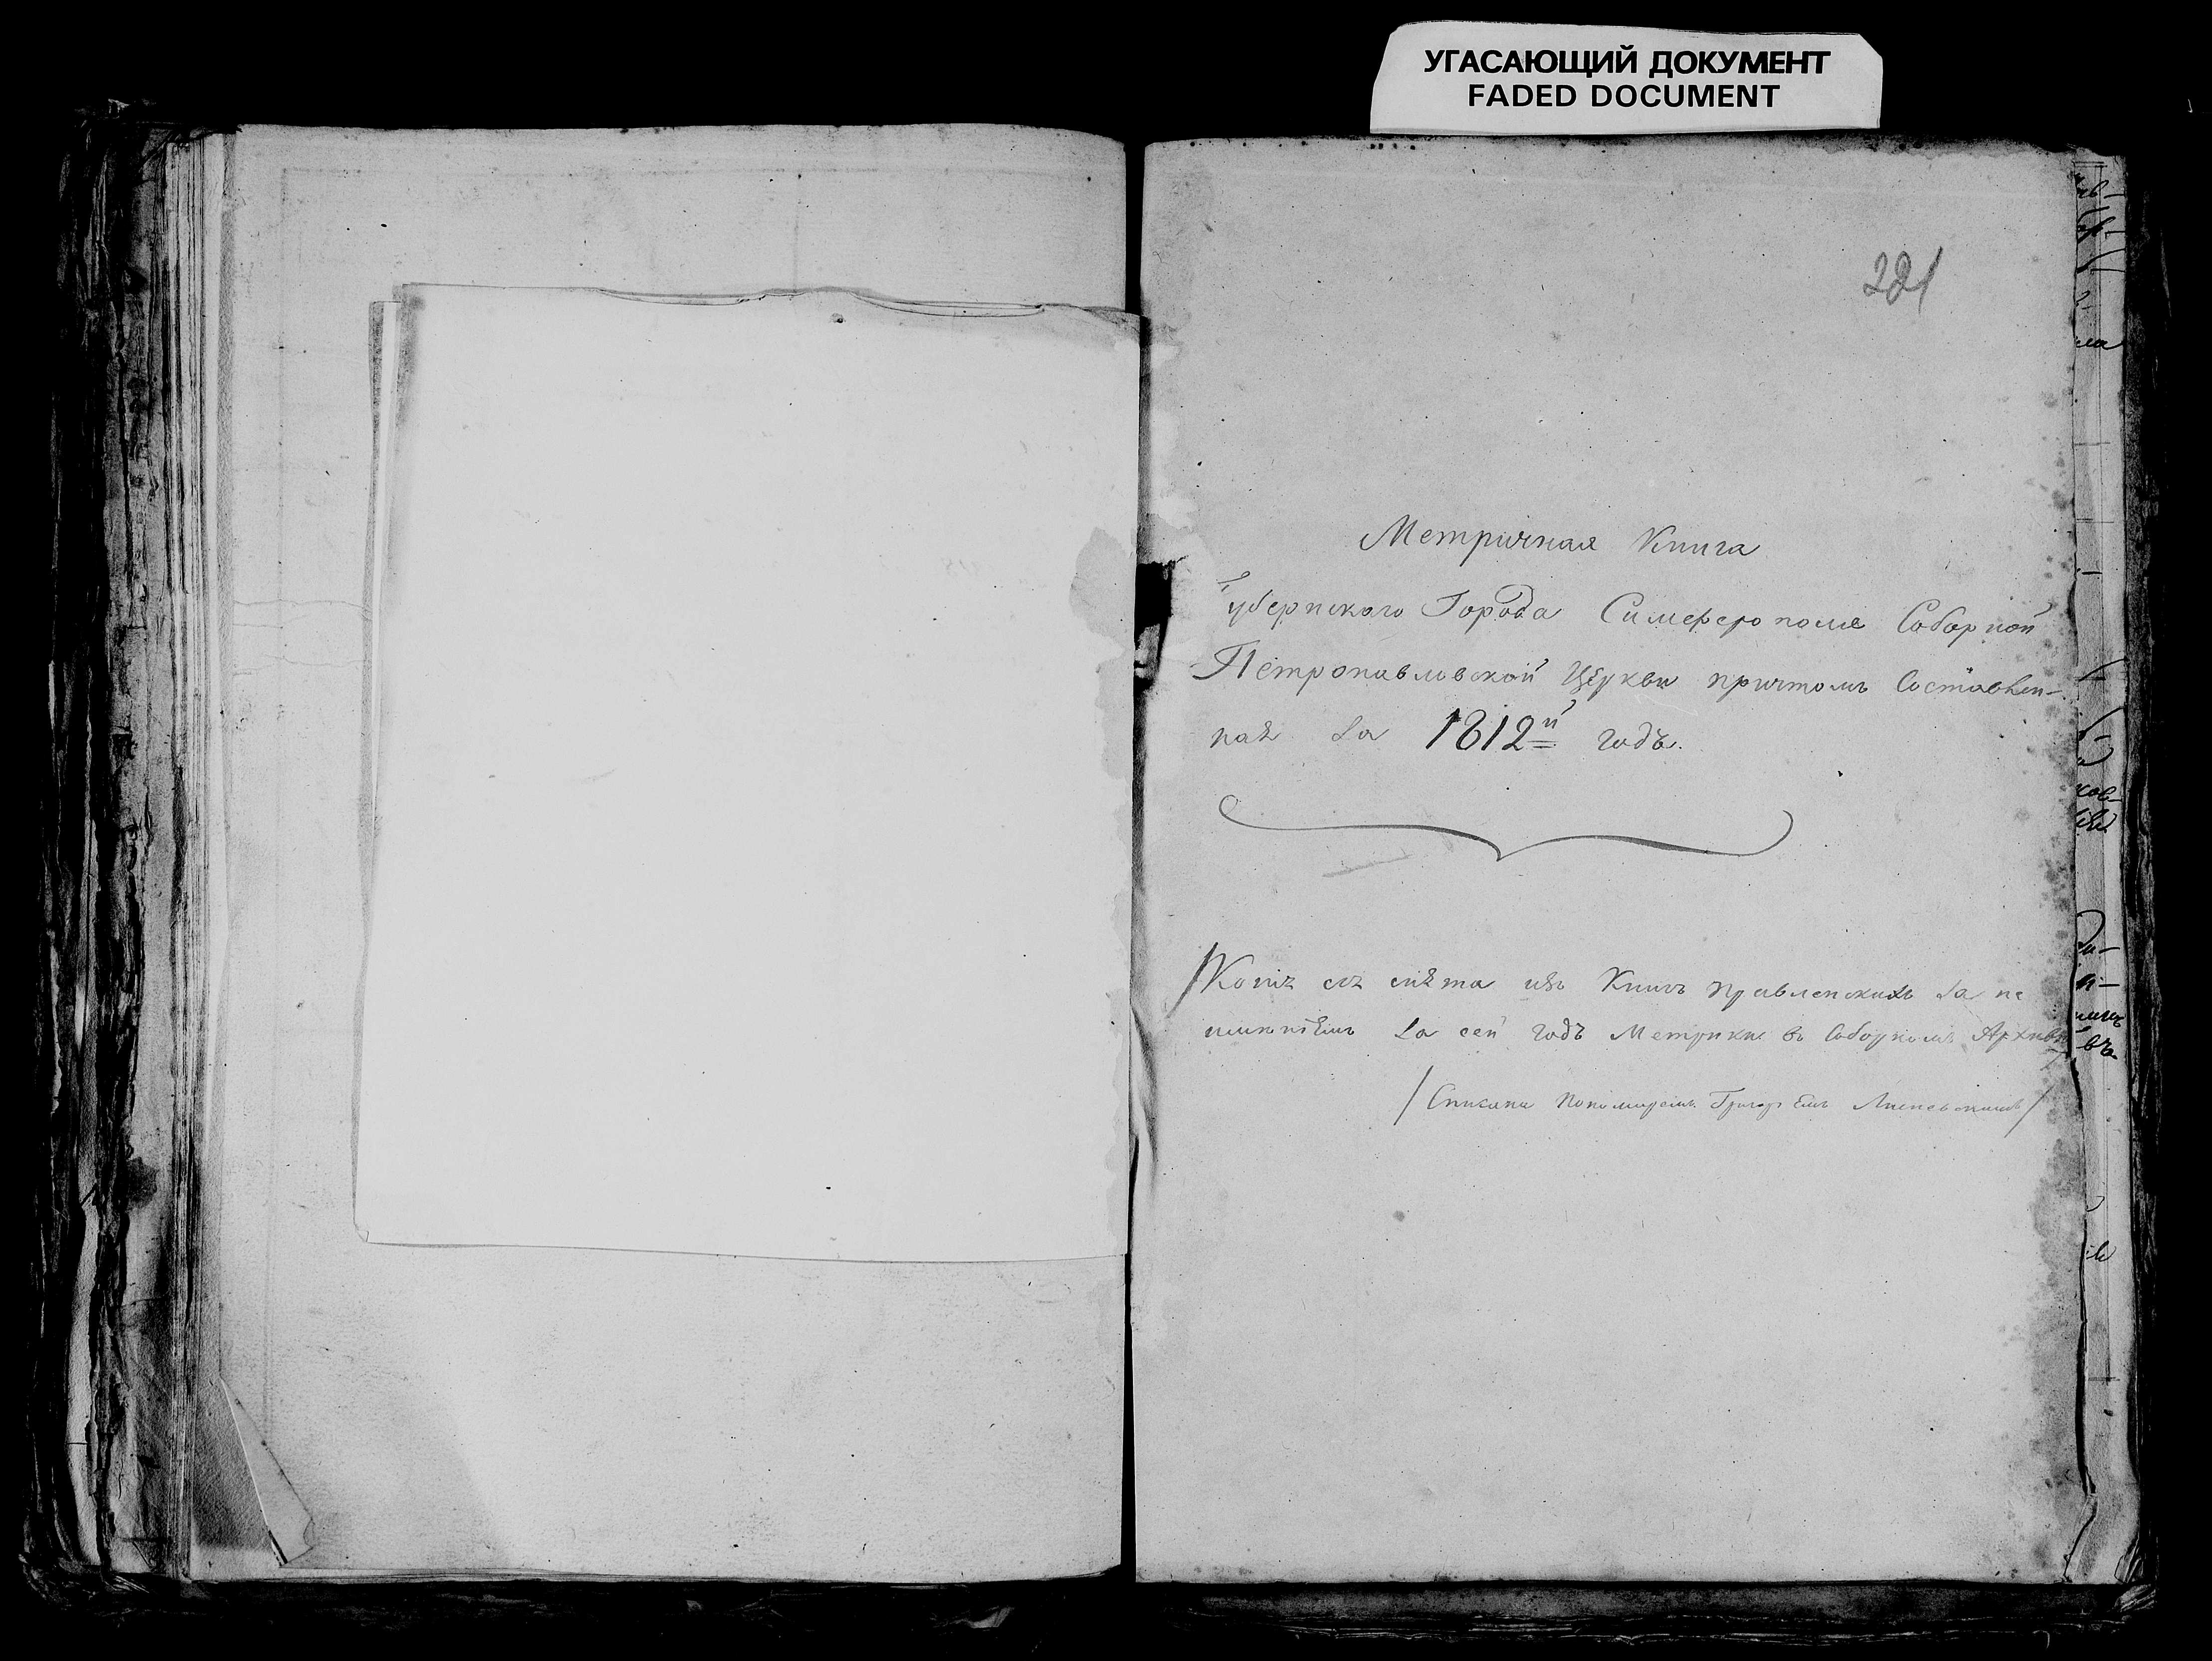 УГАСАЮЩИЙ ДОКУМЕНТ
FADED DOCUMENT
221
Метричная Книга
Губернскаго Города Симферополя Соборной
Петропавловской Церкви причтомъ Составлен-
ная За 1812й годъ.
/Копія съ снѣта изъ Книгъ Правленскихъ За не
имѣніемъ За сей годъ Метрики въ Соборномъ Архивѣ
/Списана Пономаремъ Григоріемъ